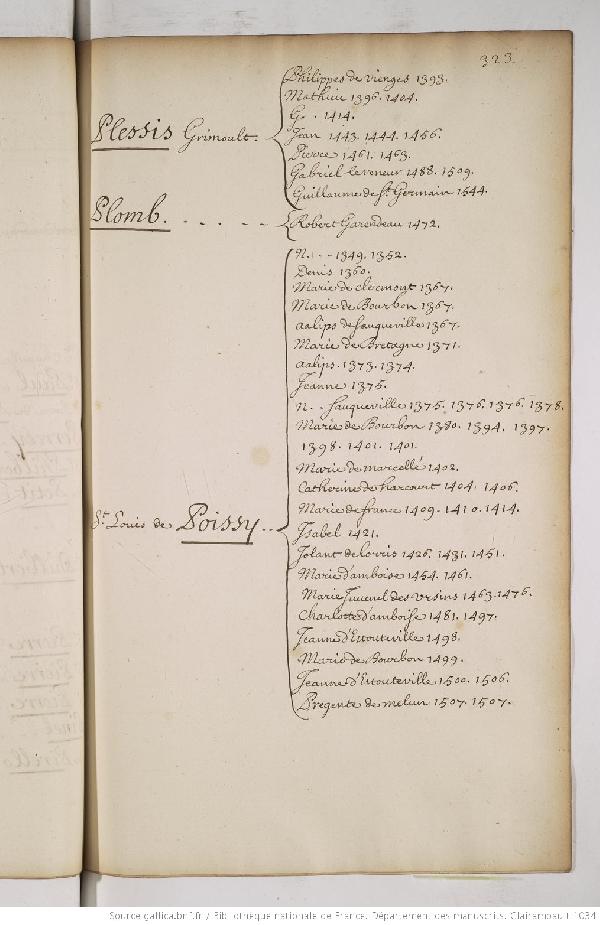 323.
Philippes de vienges 1393.
Mathieu 1396. 1404.
G. . 1414.
Plessis Grimoult. Jean 1443. 1444. 1456.
Pierre 1461. 1463.
Gabriel leveneur 1488. 1509.
Guillaume de St Germain 1544.
Plomb. - - - - - Robert Garendeau 1472.
N. - - 1349. 1352.
Denis 1360.
Marie de clermont 1367.
Marie de Bourbon 1367.
aalips de fauqueville 1367.
Marie de Bretagne 1371.
aalips. 1373. 1374.
Jeanne 1375.
N. . fauqueville 1375. 1376. 1376. 1378.
Marie de Bourbon 1380. 1394. 1397.
1398. 1401. 1401.
Marie de marcellé 1402.
Catherine de harcourt 1404. 1406.
Marie de france 1409. 1410. 1414.
St Louis de Poissy. .. Isabel 1421.
Jolant de lorris 1426. 1431. 1451.
Marie d'amboise 1454. 1461.
Marie Juvenel des Vrsins 1463. 1476.
Charlotte d'amboise 1481. 1497.
Jeanne d'Etouteville 1498.
Marie de Bourbon 1499.
Jeanne d'Etouteville 1500. 1506.
Pregente de melun 1507. 1507.
Source gallica.bnf.fr / Bibliothèque nationale de France. Département des manuscrits. Clairambault 1034